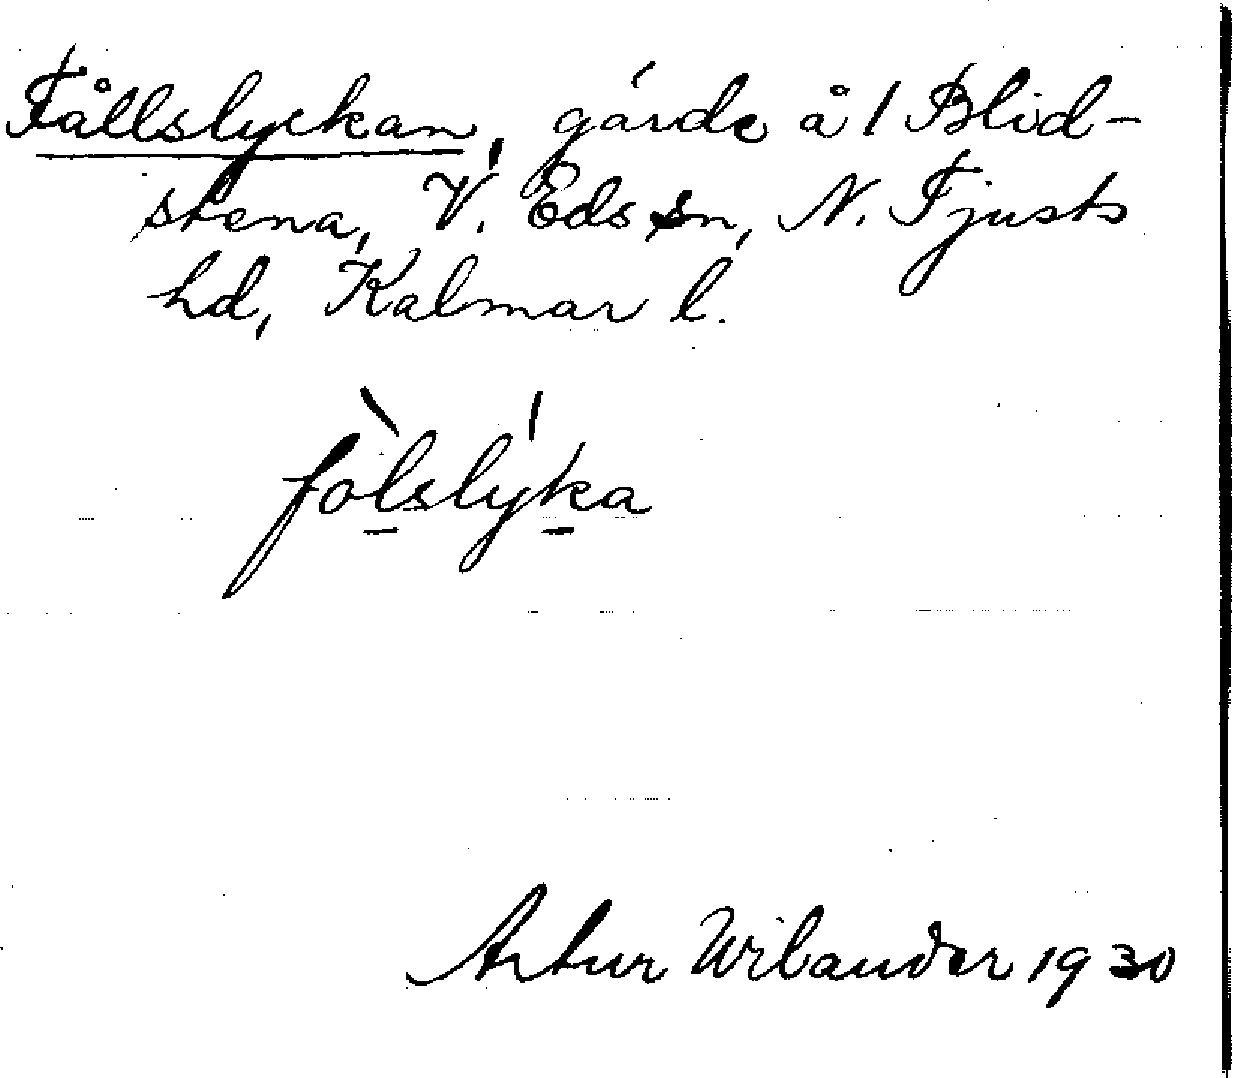 Fållslyckan, gärde å 1 Blid-
stena, V. Eds sn, N. Tjusts
hd, Kalmar l.
fòlslýka
Artur Wilander 1930